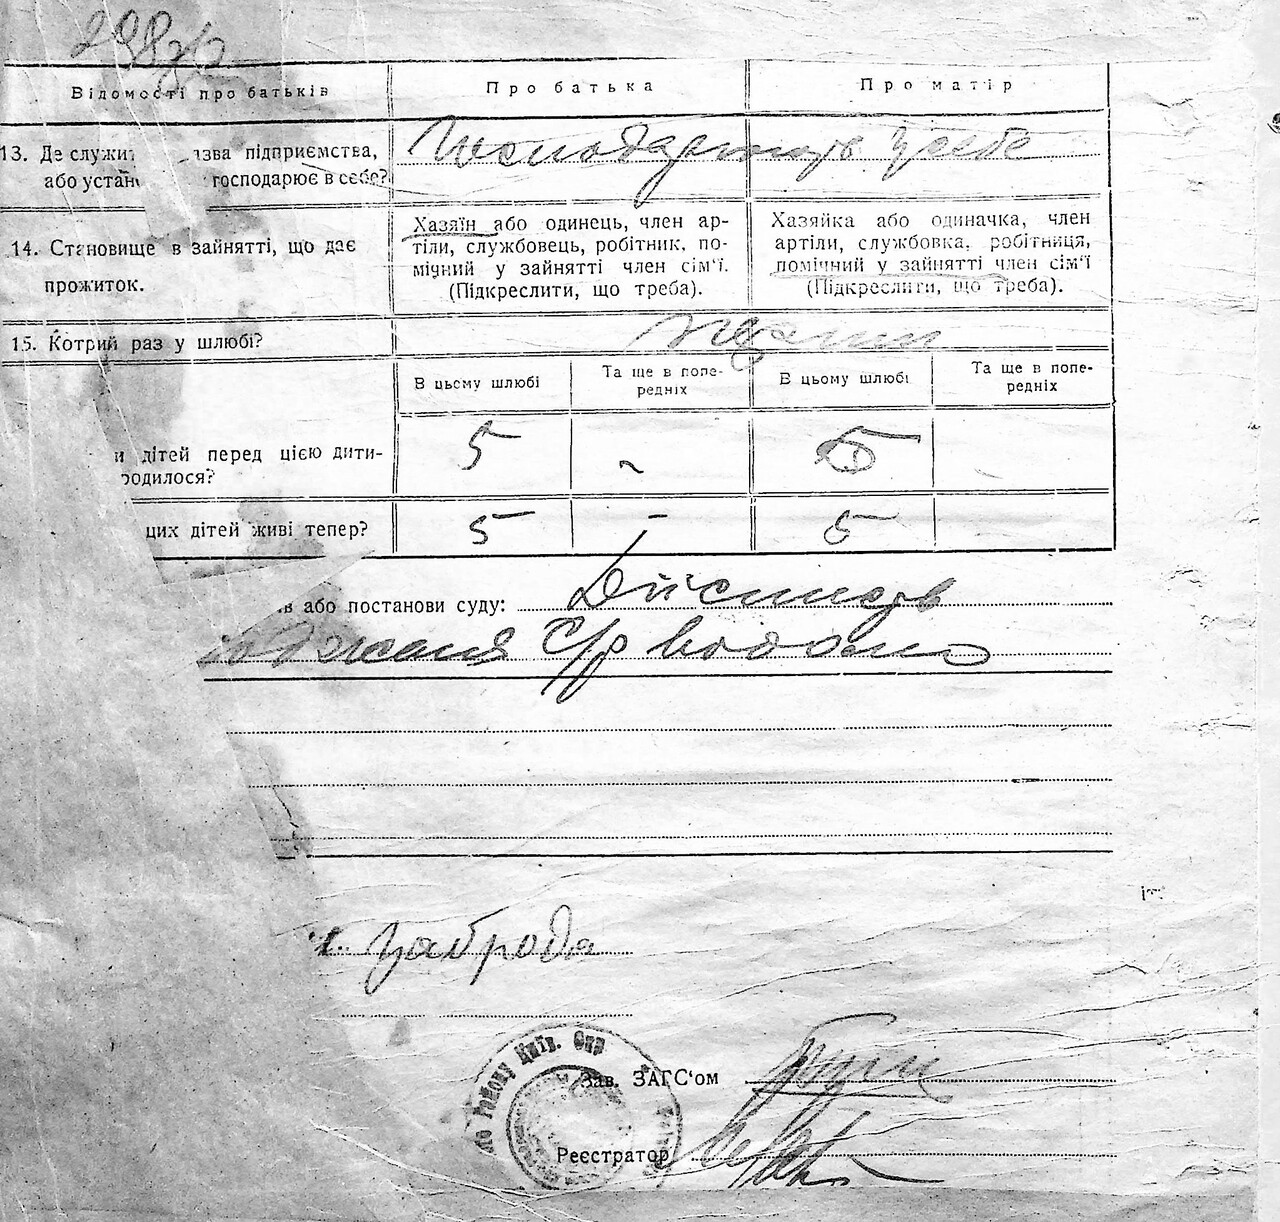 Відомості про батьків
Про батька
Про матір
13. Де служить
азва підприємства,
або устан
господарює в себе?
Господарюють у себе
14. Становище в зайнятті, що дає
прожиток.
Хазяїн або одинець, член ар-
тіли, службовець, робітник, по-
мічний у зайнятті член сім'ї.
(Підкреслити, що треба).
Хазяйка або одиначка, член
артіли, службовка, робітниця,
помічний у зайнятті член сім'ї
(Підкреслити, що треба).
15. Котрий раз у шлюбі?
В цьому шлюбі
Та ще в попе-
редніх
В цьому шлюбі
Та ще в попе-
редніх
и дітей перед цією дити-
родилося?
5
-
5
цих дітей живі тепер?
5
-
5
ів або постанови суду: Дійсність
С/р
Заброда
Київ.
Зав. ЗАГС'ом
Реєстратор